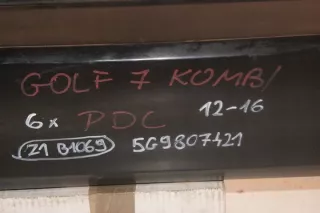 GOLF 7 KOMBI
6x PDC 12-16
Z1 B1069 5G9807421